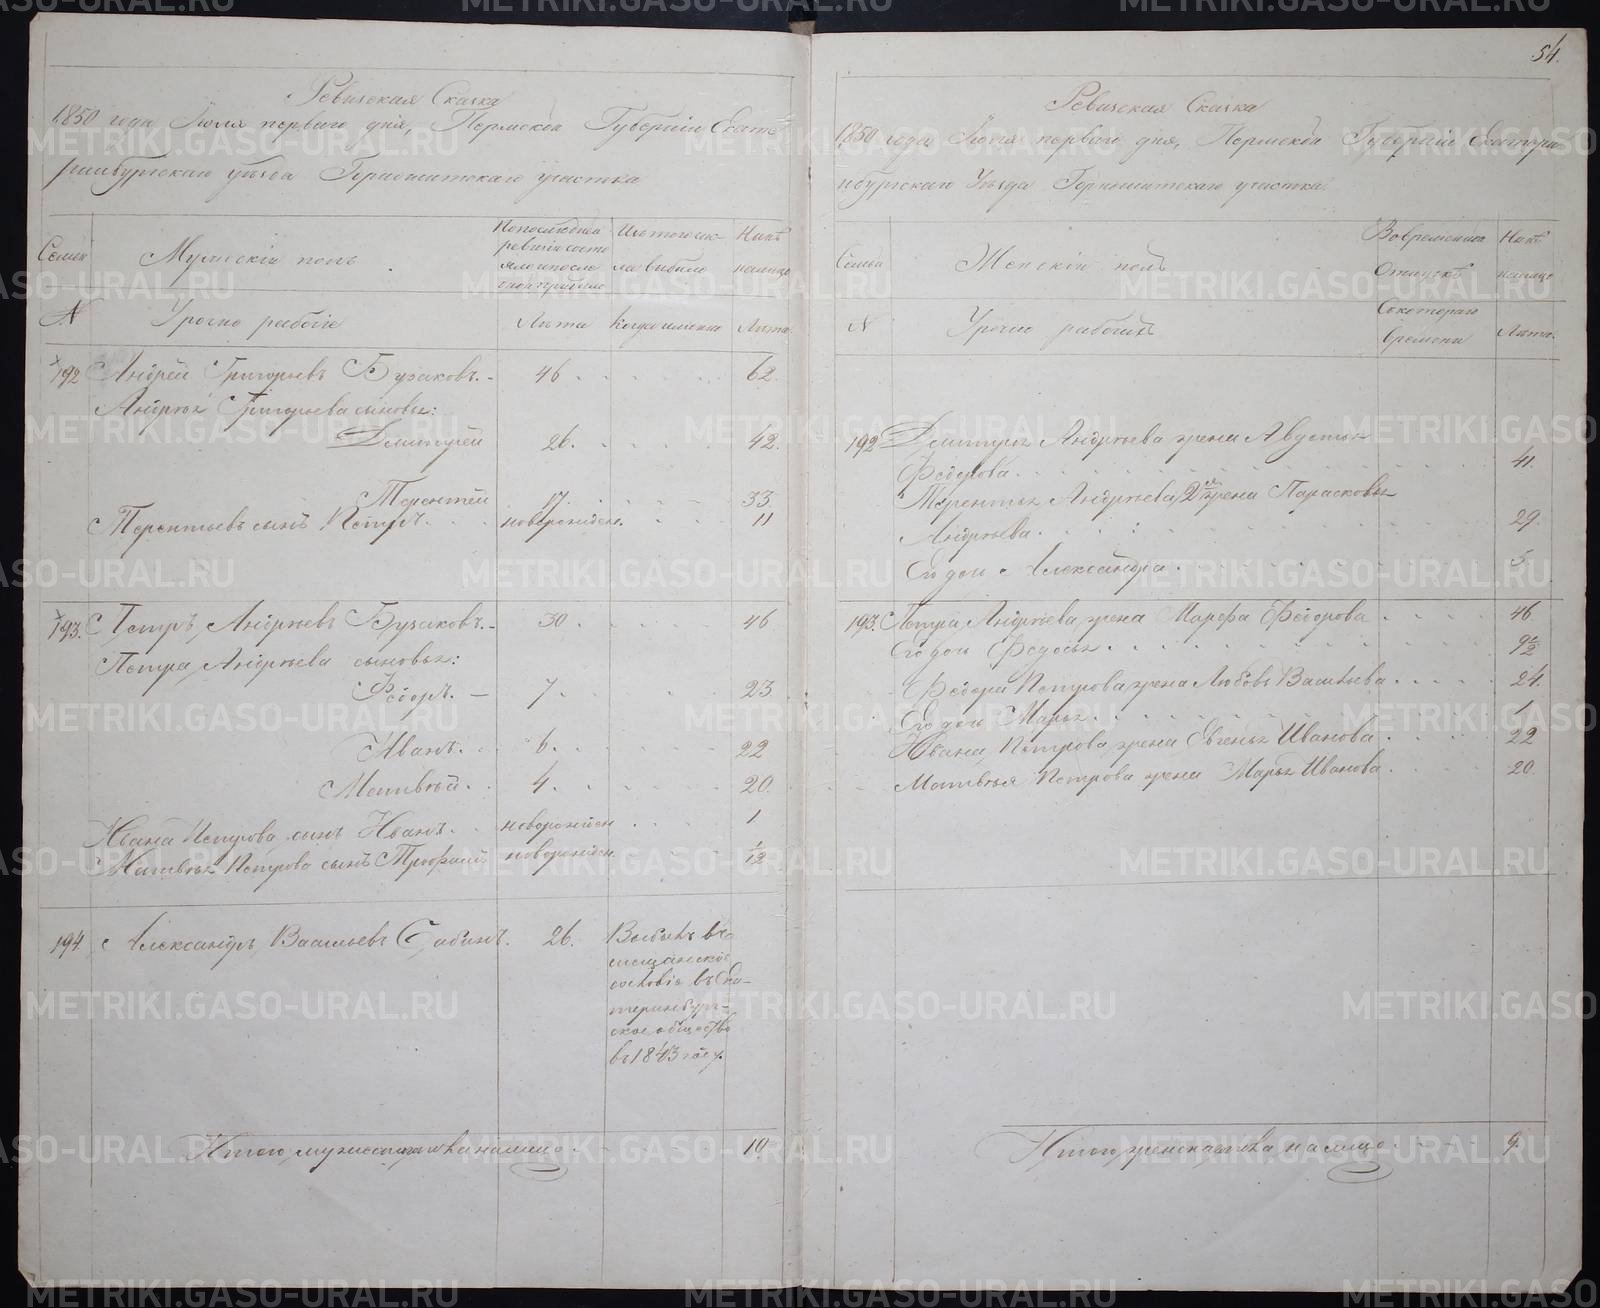 54.
Ревизская Сказка
1850 года Июля перваго дня, Пермской Губернiи Екате-
ринбургскаго уѣзда Горнощитскаго участка
Семьи
Мужескiй полъ
По последней ревизiи состояло и после оной прибыло
Изъ того числа выбыло
Нынѣ на лицо
№
Урочно рабочiе
Лѣта
Когда именно
Лѣта
192 Андрей Григорьевъ Бузаковъ. 46. 62.
Андрея Григорьева сыновья:
Дмитрей 26. 42.
Терентей 17. 33
Терентьевъ сынъ Петръ. новорожден. 11
193. Петръ Андреевъ Бузаковъ. 30. 46
Петра Андреева сыновья:
Федоръ. 7. 23
Иванъ. 6. 22
Матвѣй. 4. 20.
Ивана Петрова сынъ Иванъ. новорожден 1
Матвѣя Петрова сынъ Трофимъ новорожден 1/12
194. Александръ Васильевъ Сабинъ. 26. Выбылъ въ
мещанское
сословiе въ Ека-
теринбург-
ское общество
въ 1843 году.
Итого мужескаго пола на лицо 10
Ревизская Сказка
1850 года Июля перваго дня, Пермской Губернiи Екатери-
нбургскаго Уѣзда Горнощитскаго участка
Семьи
Женскiй полъ
Во временной отлучкѣ
Нынѣ на лицо
№
Урочно рабочихъ
Съ котораго времени
Лѣта.
192 Дмитрея Андреева жена Авдотья
Федорова. 41.
Терентья Андреева 2я жена Парасковья
Андреева. 29.
Его дочь Александра. 5
193. Петра Андреева жена Марфа Федорова 46
Его дочь Федосья. 9½
Федора Петрова жена Любовь Васильева. 24.
Его дочь Марья. 1
Ивана Петрова жена Евгенья Иванова. 22
Матвѣя Петрова жена Марья Иванова. 20.
Итого женска пола на лицо 9.
METRIKI.GASO-URAL.RU